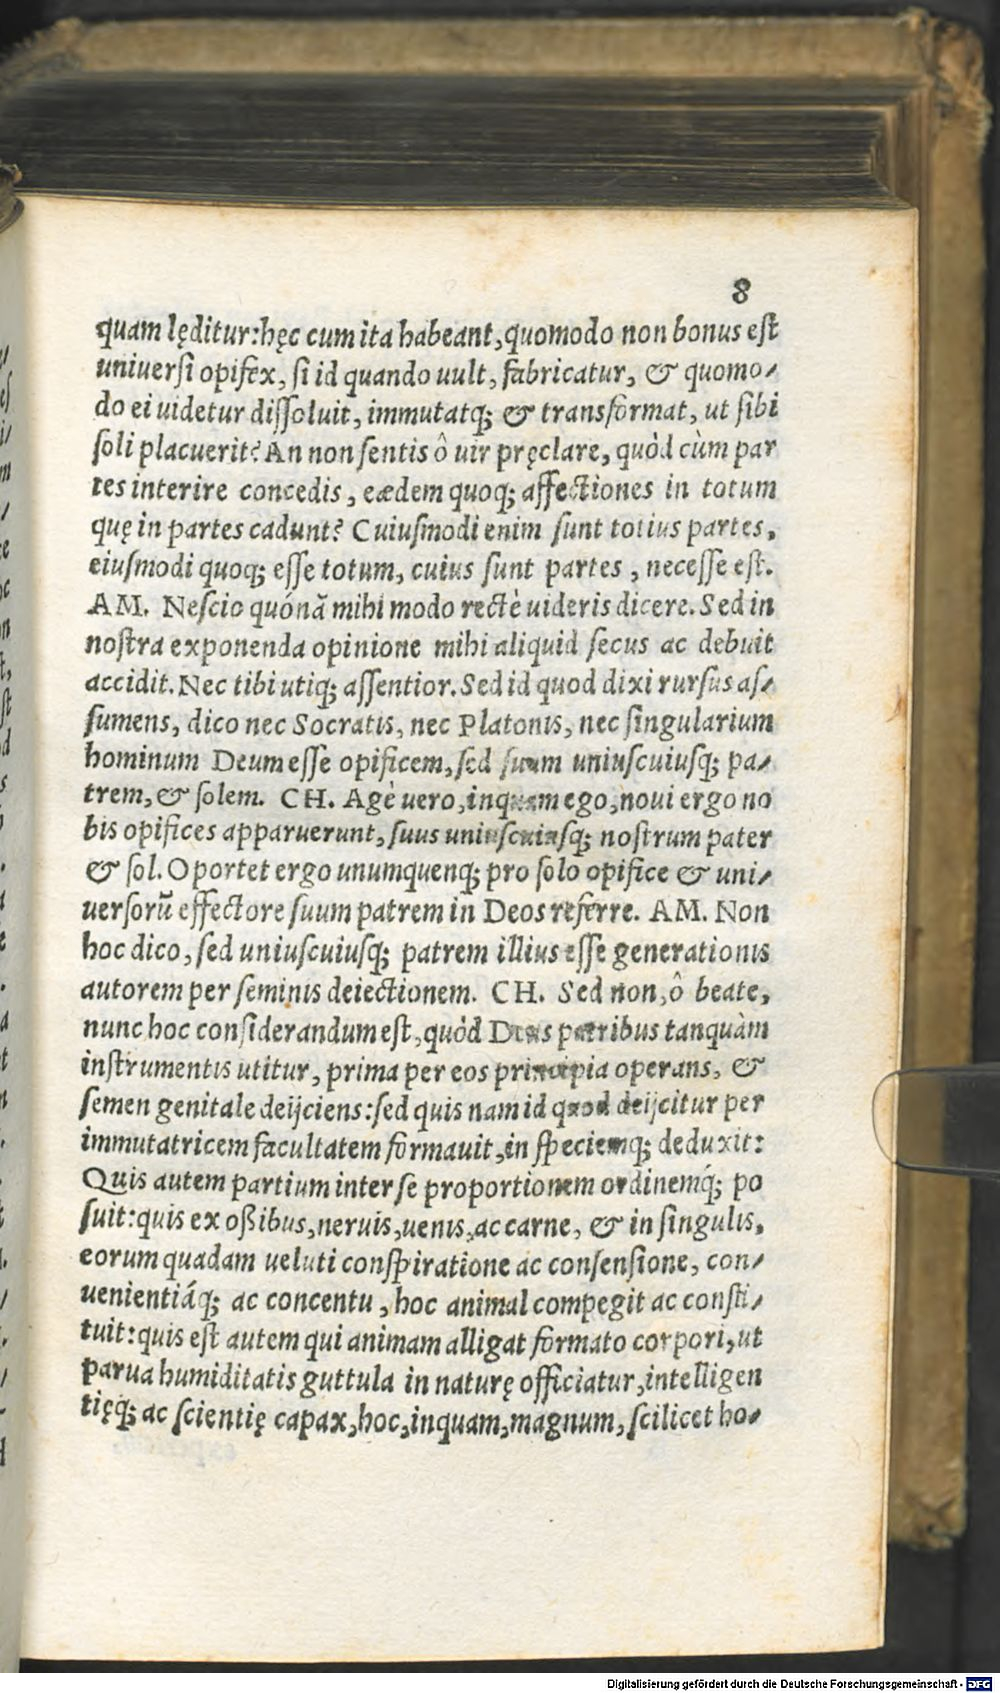 8
quam lęditur: hęc cum ita habeant, quomodo non bonus eſt
uniuerſi opifex, ſi id quando uult, fabricatur, & quomo-
do ei uidetur diſſoluit, immutatq; & transformat, ut ſibi
ſoli placuerit? An non ſentis ô uir pręclare, quòd cùm par
tes interire concedis, eædem quoq; affectiones in totum
quę in partes cadunt? Cuiuſmodi enim ſunt totius partes,
eiuſmodi quoq; eſſe totum, cuius ſunt partes, neceſſe eſt.
AM. Neſcio quónã mihi modo rectè uideris dicere. Sed in
noſtra exponenda opinione mihi aliquid ſecus ac debuit
accidit. Nec tibi utiq; aſſentior. Sed id quod dixi rurſus aſ-
ſumens, dico nec Socratis, nec Platonis, nec ſingularium
hominum Deum eſſe opificem, ſed ſuum uniuſcuiuſq; pa-
trem, & ſolem. CH. Agè uero, inquam ego, noui ergo no
bis opifices apparuerunt, ſuus uniuſcuiuſq; noſtrum pater
& ſol. Oportet ergo unumquenq; pro ſolo opifice & uni-
uerſorũ effectore ſuum patrem in Deos referre. AM. Non
hoc dico, ſed uniuſcuiuſq; patrem illius eſſe generationis
autorem per ſeminis deiectionem. CH. Sed non, ô beate,
nunc hoc conſiderandum eſt, quòd Deus patribus tanquàm
inſtrumentis utitur, prima per eos principia operans, &
ſemen genitale deijciens: ſed quis nam id quod deijcitur per
immutatricem facultatem formauit, in ſpeciemq; deduxit:
Quis autem partium inter ſe proportionem ordinemq́; po
ſuit: quis ex oßibus, neruis, uenis, ac carne, & in ſingulis,
eorum quadam ueluti conſpiratione ac conſenſione, con-
uenientiáq; ac concentu, hoc animal compegit ac conſti-
tuit: quis eſt autem qui animam alligat formato corpori, ut
parua humiditatis guttula in naturę officiatur, intelligen
tięq; ac ſcientię capax, hoc, inquam, magnum, ſcilicet ho-
Digitalisierung gefördert durch die Deutsche Forschungsgemeinschaft - DFG